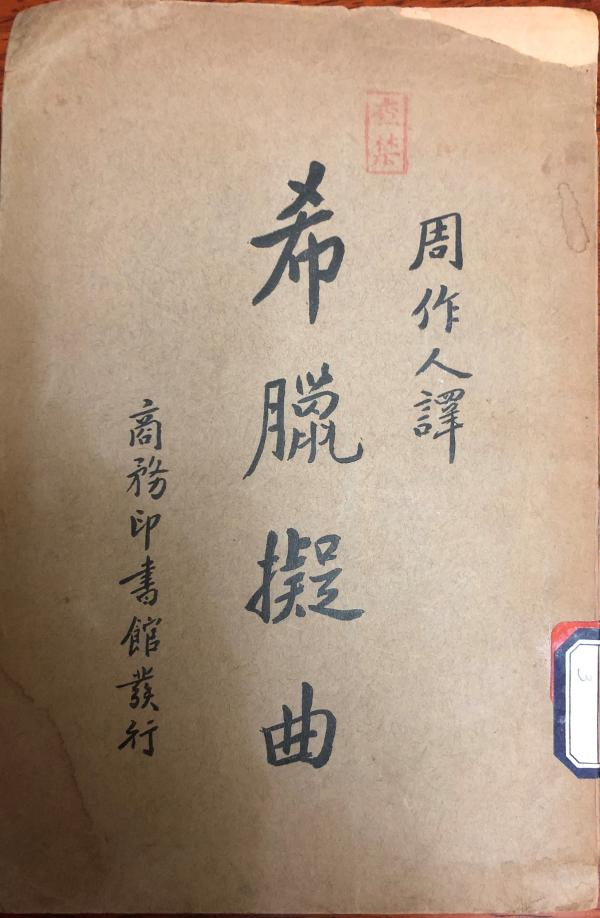 周作人譯
希臘擬曲
商務印書館發行
查禁
3